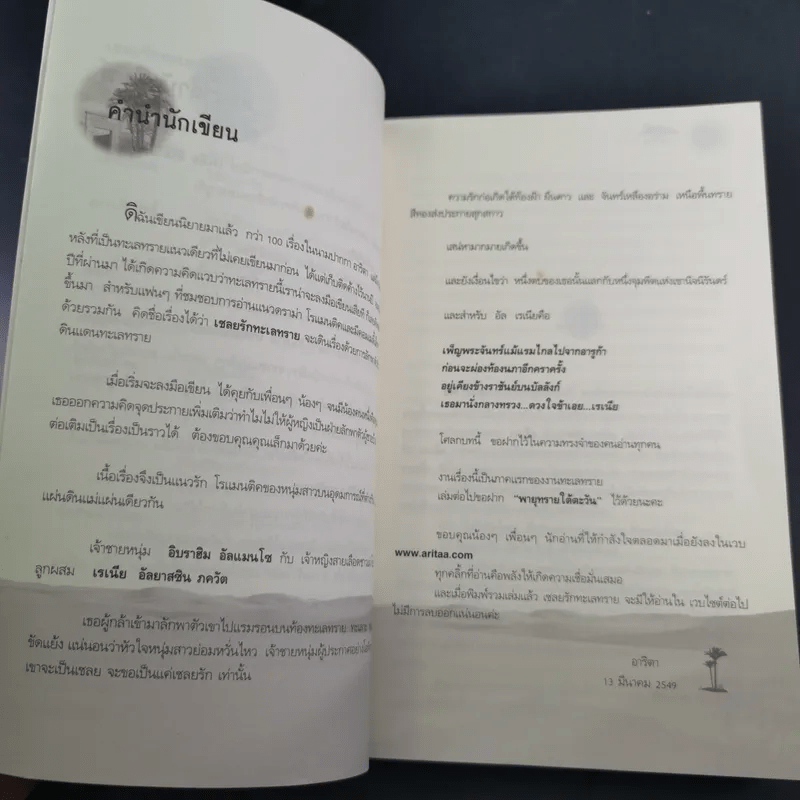 คำนำนักเขียน
ดิฉันเขียนนิยายมาแล้ว กว่า 100 เรื่องในนามปากกา อาริตา
หลังที่เป็นทะเลทรายแนวเดียวที่ไม่เคยเขียนมาก่อน ได้แต่เก็บติดค้างไว้
ปีที่ผ่านมา ได้เกิดความคิดแวบว่าทะเลทรายนี้เราน่าจะลงมือเขียนเสียที
ขึ้นมา สำหรับแฟนๆ ที่ชมชอบการอ่านแนวดราม่า โรแมนติคและมี
ด้วยรวมกัน คิดชื่อเรื่องได้ว่า เชลยรักทะเลทราย จะเดินเรื่องด้วยการ
ดินแดนทะเลทราย
เมื่อเริ่มจะลงมือเขียน ได้คุยกับเพื่อนๆ น้องๆ จนมีน้องคนหนึ่ง
เธอออกความคิดจุดประกายเพิ่มเติมว่าทำไมไม่ให้ผู้หญิงเป็นฝ่ายลักพาตัว
ต่อเติมเป็นเรื่องเป็นราวได้ ต้องขอบคุณคุณเล็กมาด้วยค่ะ
เนื้อเรื่องจึงเป็นแนวรัก โรแมนติคของหนุ่มสาวบนอุดมการณ์ที่
แผ่นดินแม่แผ่นเดียวกัน
เจ้าชายหนุ่ม อิบราฮิม อัลแมนโซ กับ เจ้าหญิงสายเลือด
ลูกผสม เรเนีย อัลยาสซิน ภควัต
เธอผู้กล้าเข้ามาลักพาตัวเขาไปแรมรอนบนท้องทะเลทราย
ขัดแย้ง แน่นอนว่าหัวใจหนุ่มสาวย่อมหวั่นไหว เจ้าชายหนุ่มผู้ประกาศ
เขาจะเป็นเชลย จะขอเป็นแค่เชลยรัก เท่านั้น
ความรักก่อเกิดใต้ท้องฟ้า ผืนดาว และ จันทร์เหลืองอร่าม เหนือพื้นทราย
สีทองส่งประกายสุกสกาว
เสน่หามากมายเกิดขึ้น
และยังเงื่อนไขว่า หนึ่งคบของเธอนั้นแลกกับหนึ่งจุมพิตแห่งเขานิจนิรันดร์
และสำหรับ อัล เรเนียคือ
เพ็ญพระจันทร์แม้แรมไกลไปจากอารูก้า
ก่อนจะผ่องท้องนภาอีกคราครั้ง
อยู่เคียงข้างราชันย์บนบัลลังก์
เธอมานั่งกลางทรวง...ดวงใจข้าเอย...เรเนีย
โศลกบทนี้ ขอฝากไว้ในความทรงจำของคนอ่านทุกคน
งานเรื่องนี้เป็นภาคแรกของงานทะเลทราย
เล่มต่อไปขอฝาก "พายุทรายใต้ตะวัน" ไว้ด้วยนะคะ
ขอบคุณน้องๆ เพื่อนๆ นักอ่านที่ให้กำลังใจตลอดมาเมื่อยังลงในเวบ
www.aritaa.com
ทุกคลิ๊กที่อ่านคือพลังให้เกิดความเชื่อมั่นเสมอ
และเมื่อพิมพ์รวมเล่มแล้ว เชลยรักทะเลทราย จะมีให้อ่านใน เวบไซต์ต่อไป
ไม่มีการลบออกแน่นอนค่ะ
อาริตา
13 มีนาคม 2549